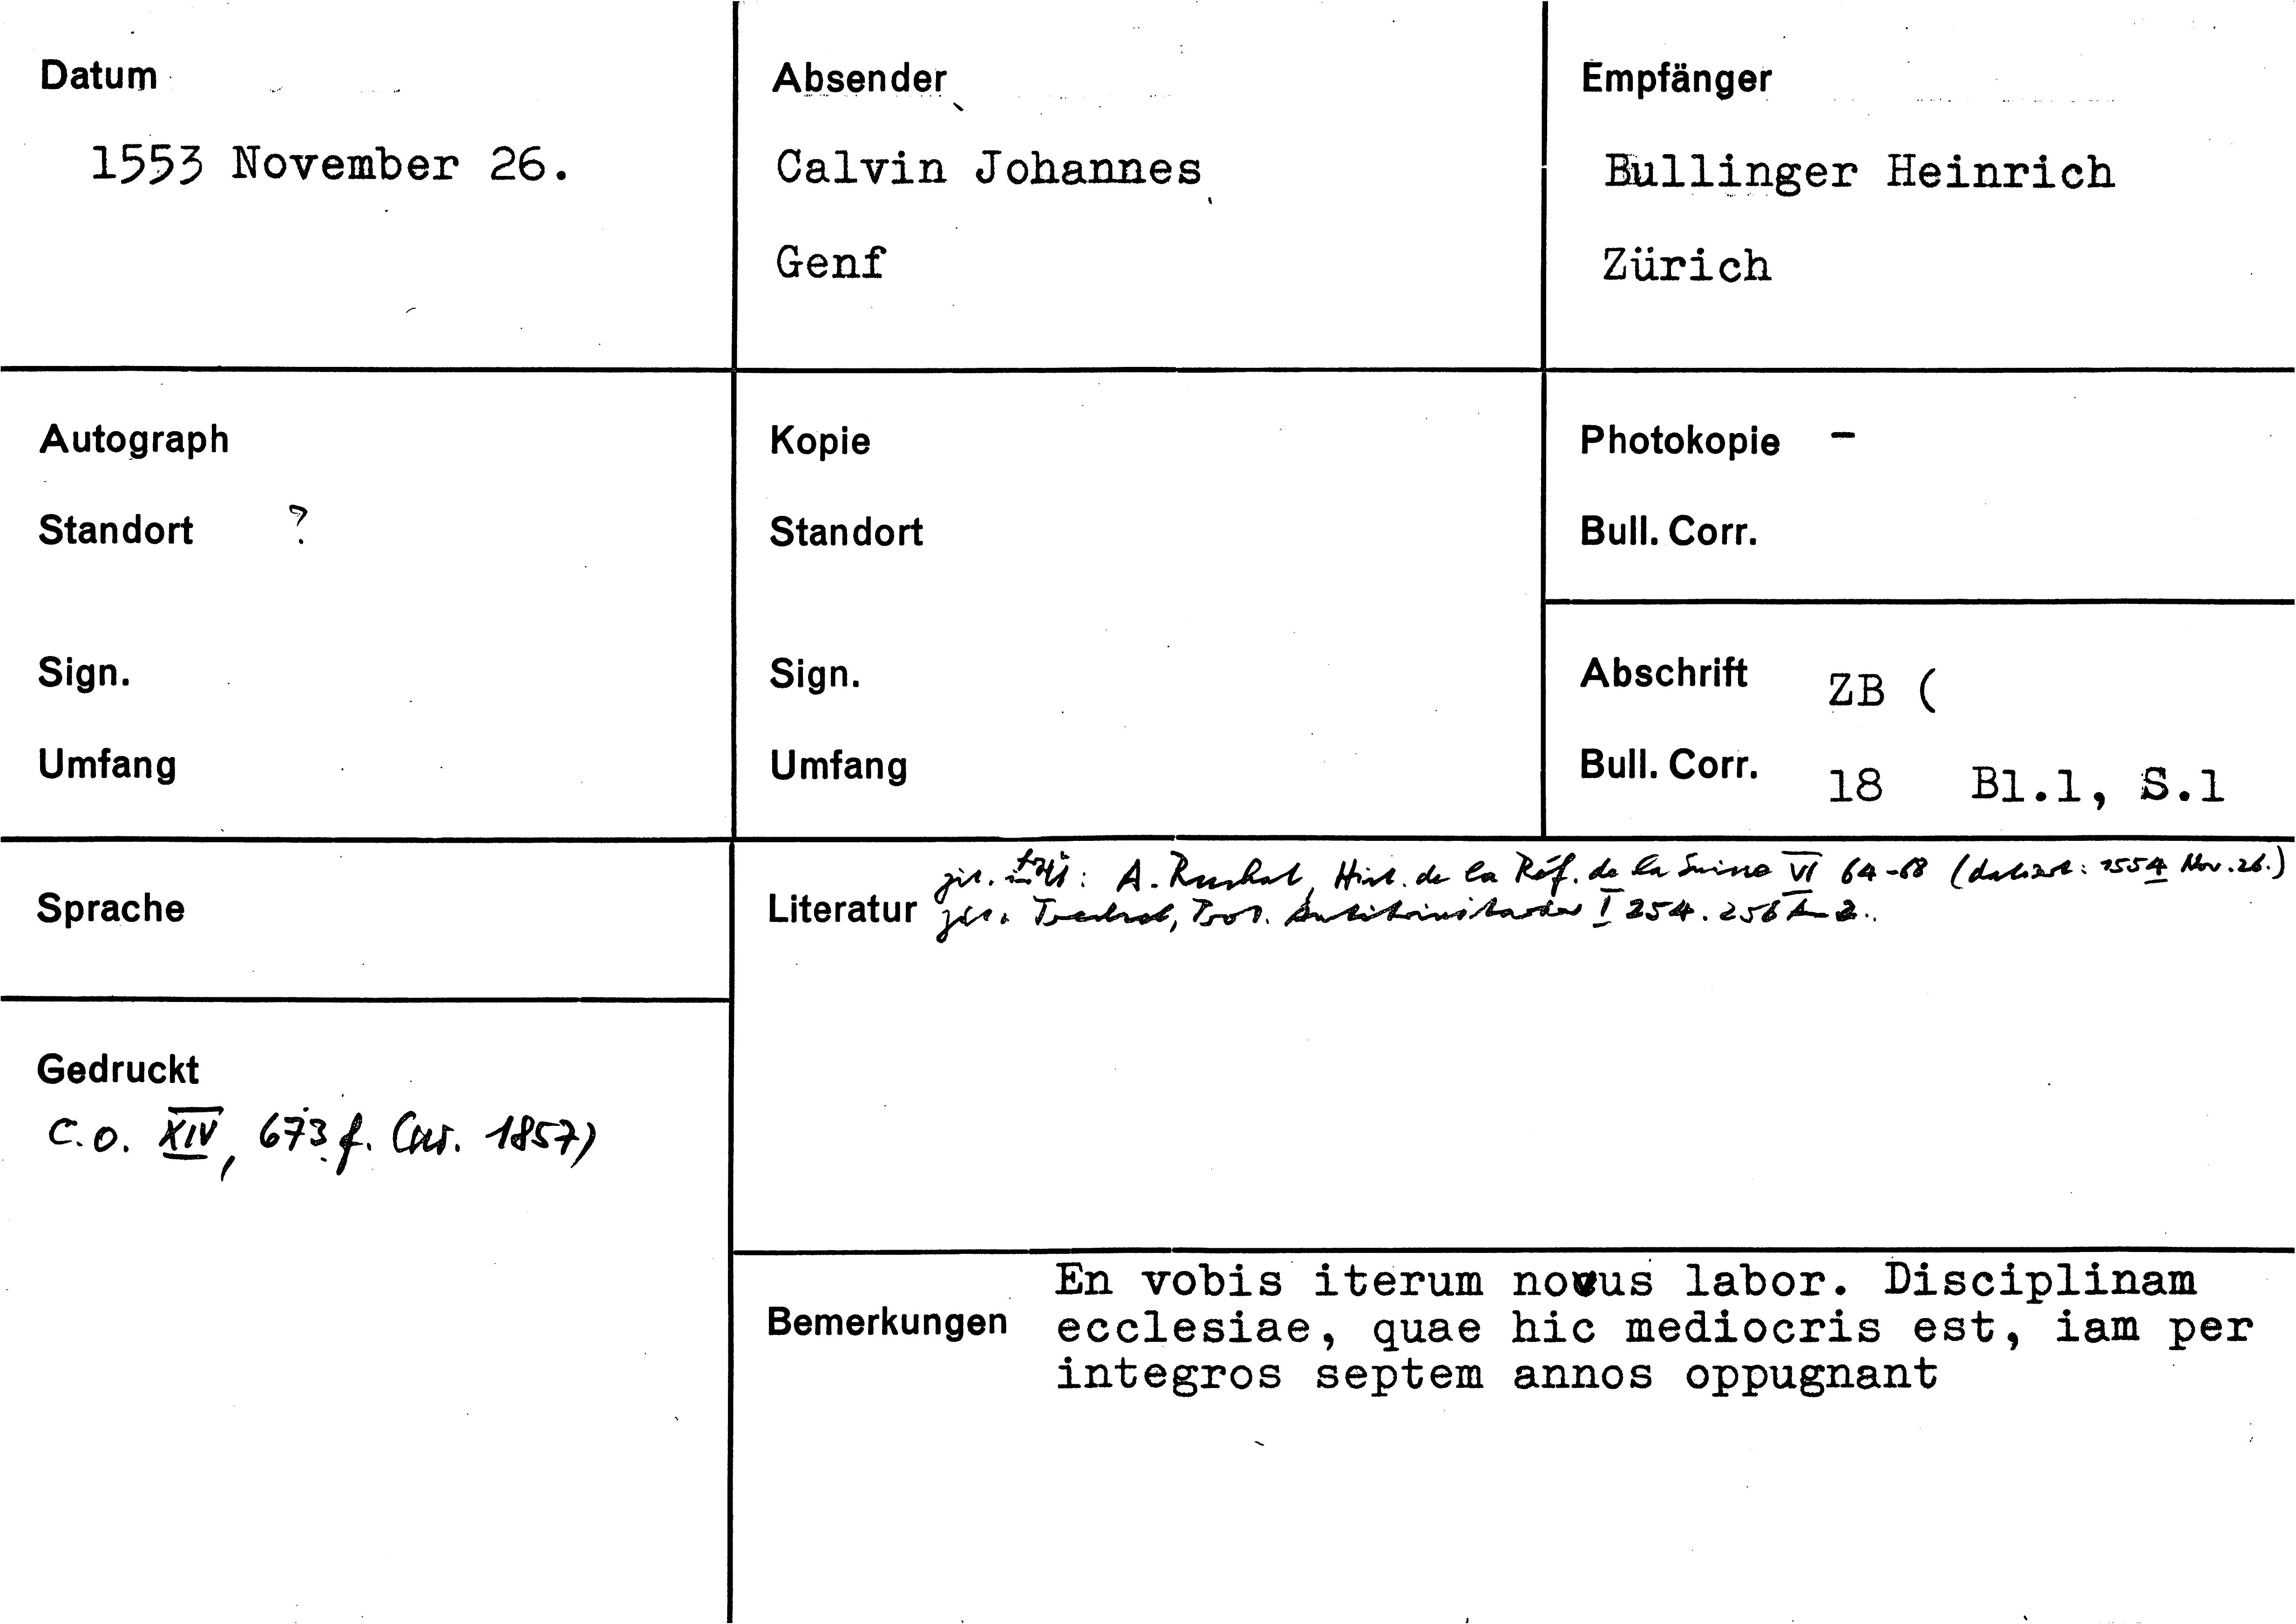 Datum
1553 November 26.
Absender
Calvin Johannes
Genf
Empfänger
Bullinger Heinrich
Zürich
Autograph
Standort ?
Sign.
Umfang
Kopie
Standort
Sign.
Umfang
Photokopie -
Bull. Corr.
Abschrift ZB (
Bull. Corr. 18 Bl.1, S.1
Sprache
Gedruckt
C.O. XIV, 673 f. (nr. 1857)
Literatur
A. Ruchat, Hist. de la Réf. de la Suisse VI 64-68 (datiert: 1554 Nov. 26.)
Trechsel, Prot. Antitrinitarier I 254. 256
Bemerkungen
En vobis iterum novus labor. Disciplinam
ecclesiae, quae hic mediocris est, iam per
integros septem annos oppugnant